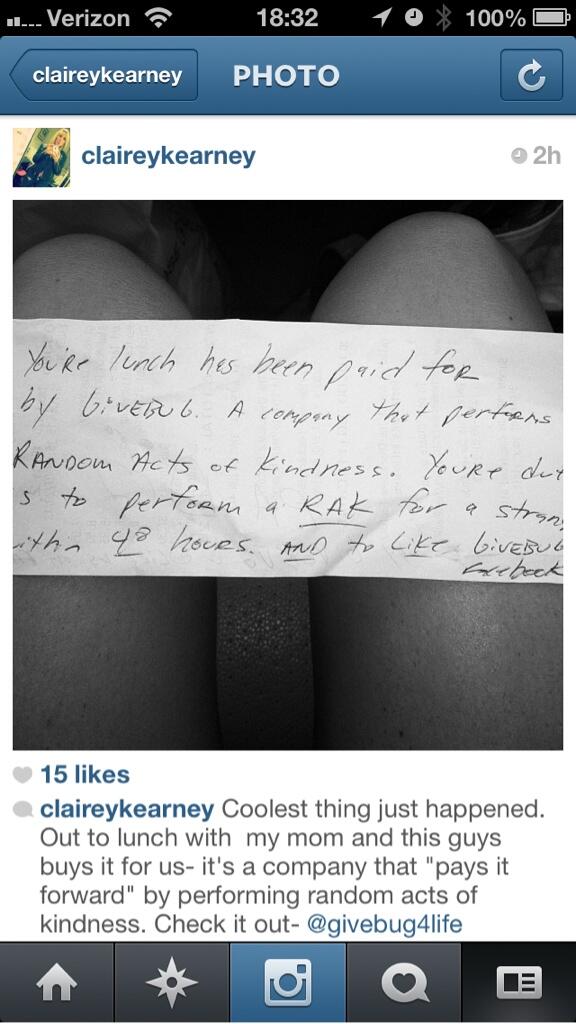 Verizon 18:32 100%
claireykearney PHOTO
claireykearney 2h
You're lunch has been paid for
by GiveBUG. A company that performs
RANDOM Acts of Kindness. You're dut
s to perform a RAK for a stran
ithn 48 hours. AND to LIKE GiveBUG
facebook
15 likes
claireykearney Coolest thing just happened.
Out to lunch with my mom and this guys
buys it for us- it's a company that "pays it
forward" by performing random acts of
kindness. Check it out- @givebug4life